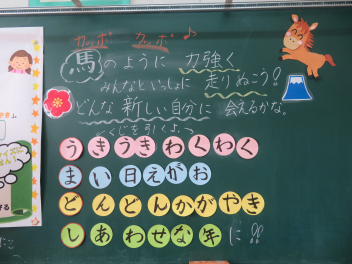 カッポ カッポ♪
馬のように 力強く
みんなといっしょに 走りぬこう?
どんな新しい自分に 会えるかな。
くじを引くよっ
うきうきわくわく
まい日えがお
どんどんかがやき
しあわせな年に!!